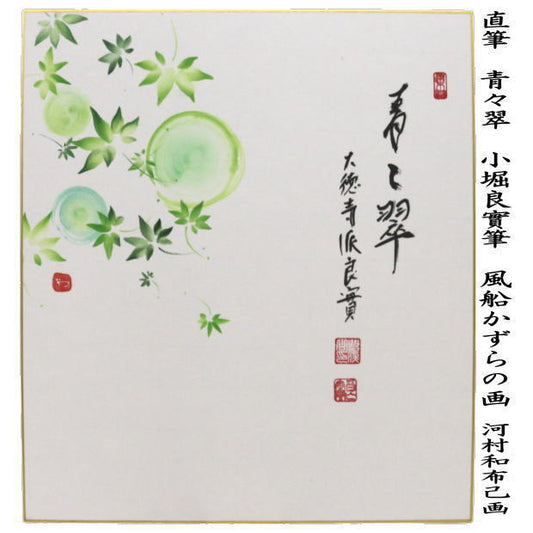 直筆　青々翠　小堀良實筆　風船かずらの画　河村和布己画
青々翠
大徳寺派良實